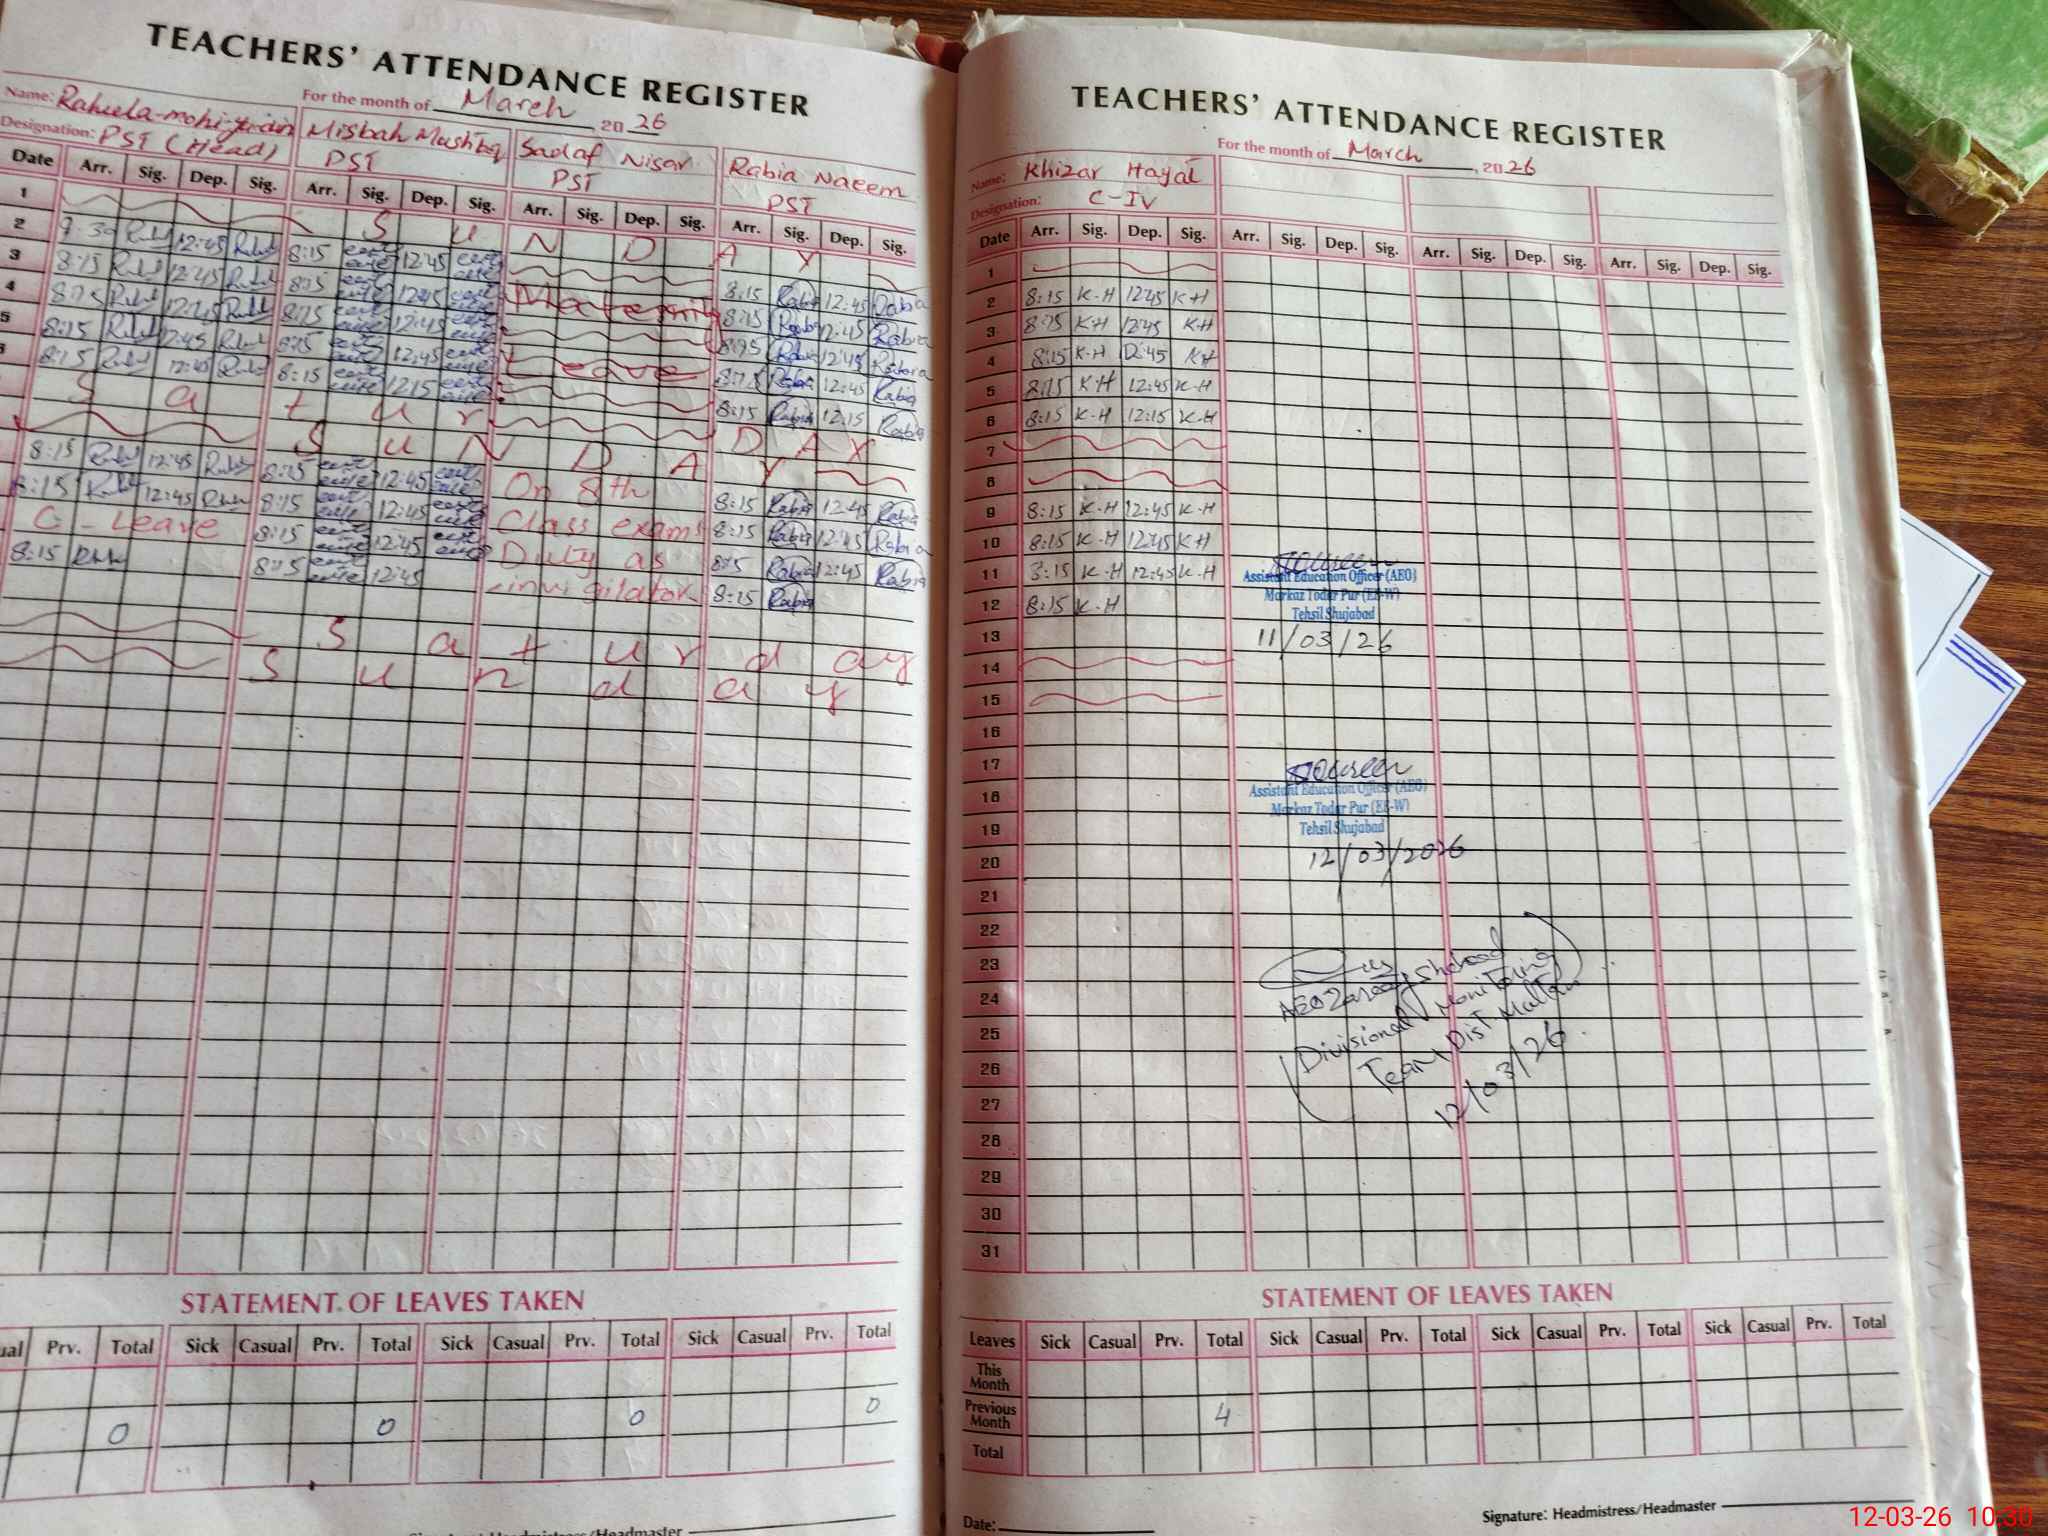 TEACHERS' ATTENDANCE REGISTER
For the month of March, 2026
Name: Raheela
Designation: PST (Head)
Misbah Mushtaq
PST
Sadaf Nisar
PST
Rabia Naeem
PST
Date Arr. Sig. Dep. Sig. Arr. Sig. Dep. Sig. Arr. Sig. Dep. Sig. Arr. Sig. Dep. Sig.
1 S U N D A Y
2 12:45 8:15 12:45 8:15 Rabia 12:45 Rabia
3 8:15 12:45 8:15 12:45 Maternity 8:15 Rabia 12:45 Rabia
4 8:15 12:45 8:15 12:45 8:15 Rabia 12:45 Rabia
5 8:15 12:45 8:15 12:45 Leave 8:15 Rabia 12:45 Rabia
8:15 8:15 12:15 8:15 Rabia 12:15 Rabia
S a t u r D A Y
S U N D A Y
8:15 12:45 8:15 12:45 On 8th 8:15 Rabia 12:45 Rabia
8:15 12:45 8:15 12:45 Class exams 8:15 Rabia 12:45 Rabia
C-Leave 8:15 12:45 Duty as 8:15 Rabia 12:45 Rabia
8:15 8:15 12:45 invigilator 8:15 Rabia
S a t u r d ay
S u n d a y
STATEMENT OF LEAVES TAKEN
Prv. Total Sick Casual Prv. Total Sick Casual Prv. Total Sick Casual Prv. Total
0 0 0 0
TEACHERS' ATTENDANCE REGISTER
For the month of March, 2026
Name: Khizar Hayat
Designation: C-IV
Date Arr. Sig. Dep. Sig. Arr. Sig. Dep. Sig. Arr. Sig. Dep. Sig. Arr. Sig. Dep. Sig.
1
2 8:15 K-H 12:45 K-H
3 8:15 K-H 12:45 K-H
4 8:15 K-H 12:45 K-H
5 8:15 K-H 12:45 K-H
6 8:15 K-H 12:15 K-H
7
8
9 8:15 K-H 12:45 K-H
10 8:15 K-H 12:45 K-H
11 8:15 K-H 12:45 K-H
12 8:15 K-H
13
14
15
16
17
18
19
20
21
22
23
24
25
26
27
28
29
30
31
Assistant Education Officer (AEO)
Markaz Todar Pur (EE-W)
Tehsil Shujabad
11/03/26
Assistant Education Officer (AEO)
Markaz Todar Pur (EE-W)
Tehsil Shujabad
12/03/2026
AEO Shahzad
Divisional Monitoring
Team Dist Multan
12/03/26
STATEMENT OF LEAVES TAKEN
Leaves Sick Casual Prv. Total Sick Casual Prv. Total Sick Casual Prv. Total Sick Casual Prv. Total
This Month
Previous Month 4
Total
Date:
Signature: Headmistress/Headmaster
12-03-26 10:30